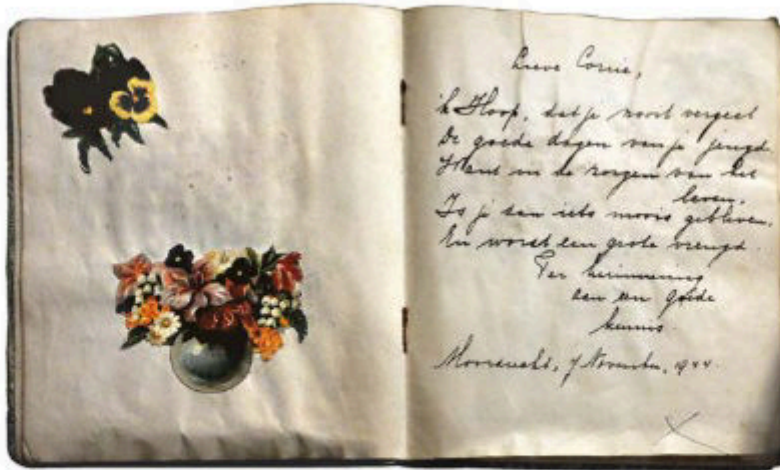 Lieve Corrie,
ik Hoop, dat je nooit vergeet
De goede dagen van je jeugd.
Want in de zorgen van het
leven.
Is je dan iets moois gebleven.
En wordt een grote vreugd.
Ter herinnering
aan een goede
kennis.
7 November, 1944.